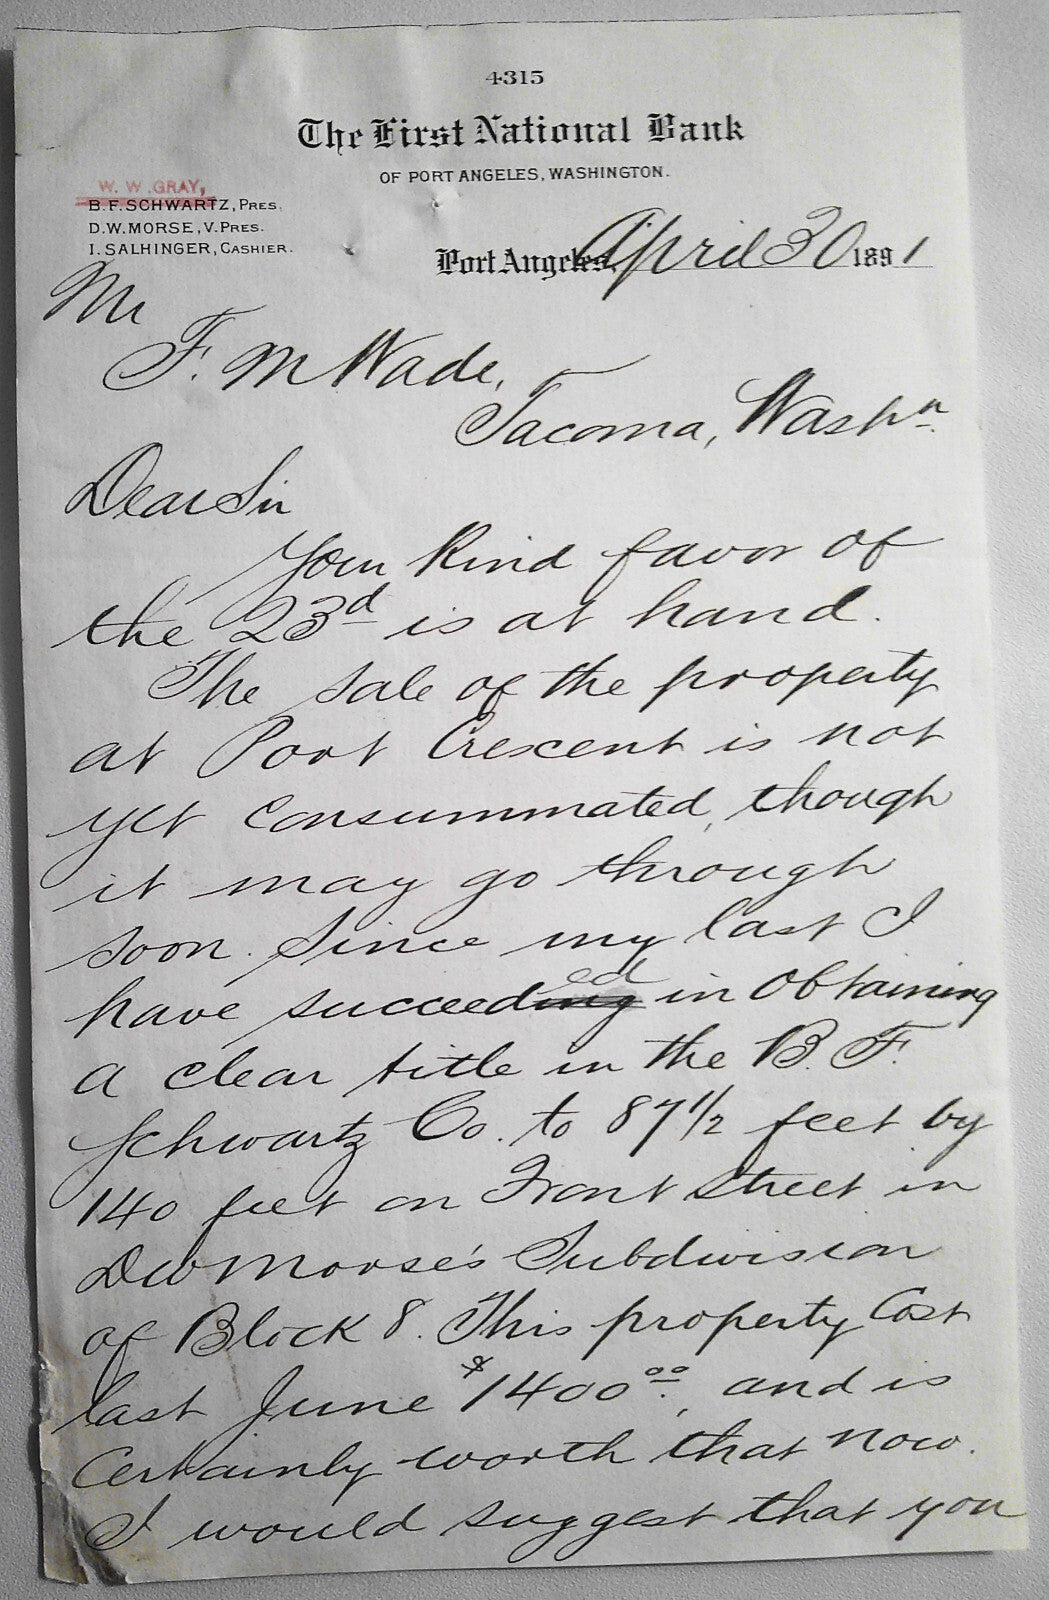 4315
The First National Bank
OF PORT ANGELES, WASHINGTON.
W. W. GRAY,
B. F. SCHWARTZ, PRES.
D. W. MORSE, V. PRES.
I. SALHINGER, CASHIER.
Port Angeles, April 30 1891
Mr
F. M Wade,
Tacoma, Washn.
Dear Sir
Your kind favor of
the 23d is at hand.
The sale of the property
at Port Crescent is not
yet consummated, though
it may go through
soon. Since my last I
have succeeding ed in obtaining
a clear title in the B. F.
Schwartz Co. to 87 1/2 feet by
140 feet on Front Street in
D W Morse's Subdivision
of Block 8. This property cost
last June $1400 00, and is
certainly worth that now.
I would suggest that you